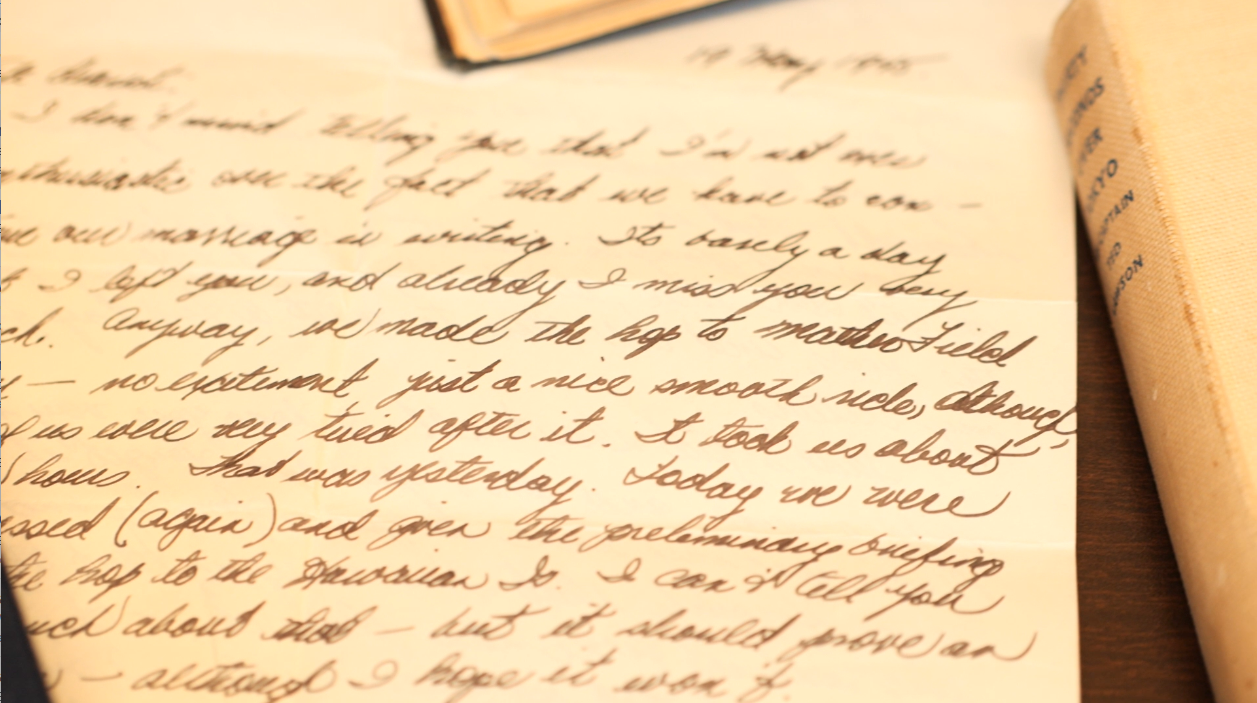 19 May 1945
I don't mind telling you that I'm not over
enthusiastic over the fact that we have to con-
our marriage in writing. Its barely a day
I left you, and already I miss you very
ch. Anyway, we made the hop to Mather Field
— no excitement just a nice smooth ride, although
of us were very tired after it. It took us about
hours. That was yesterday. Today we were
ssed (again) and given the preliminary briefing
the hop to the Hawaiian Is. I can't tell you
uch about that — but it should prove an
— although I hope it won't.
OVER
TOKYO
CAPTAIN
TED
LAWSON